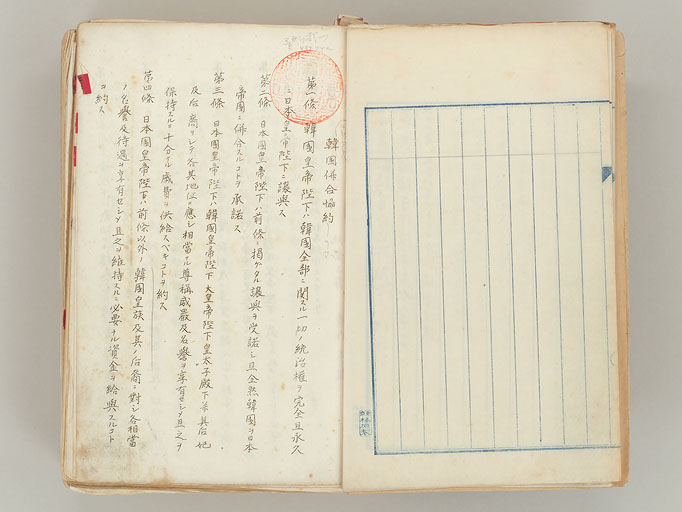 韓國併合協約
第一條 韓國皇帝陛下ハ韓國全部ニ関スル一切ノ統治權ヲ完全且永久
ニ日本皇帝陛下ニ讓與ス
第二條 日本國皇帝陛下ハ前條ニ掲ゲタル讓與ヲ受諾シ且全然韓國ヲ日本
帝國ニ併合スルコトヲ承諾ス
第三條 日本國皇帝陛下ハ韓國皇帝陛下大皇帝陛下皇太子殿下並其后妃
及后裔ヲシテ各其地位ニ應シ相當ナル尊稱威嚴及名譽ヲ享有セシメ且之ヲ
保持スルニ十分ナル歲費ヲ供給スベキコトヲ約ス
第四條 日本國皇帝陛下ハ前條以外ノ韓國皇族及其ノ后裔ニ對シ各相當
ノ名譽及待遇ヲ享有セシメ且之ヲ維持スルニ必要ナル資金ヲ給與スルコト
ヲ約ス